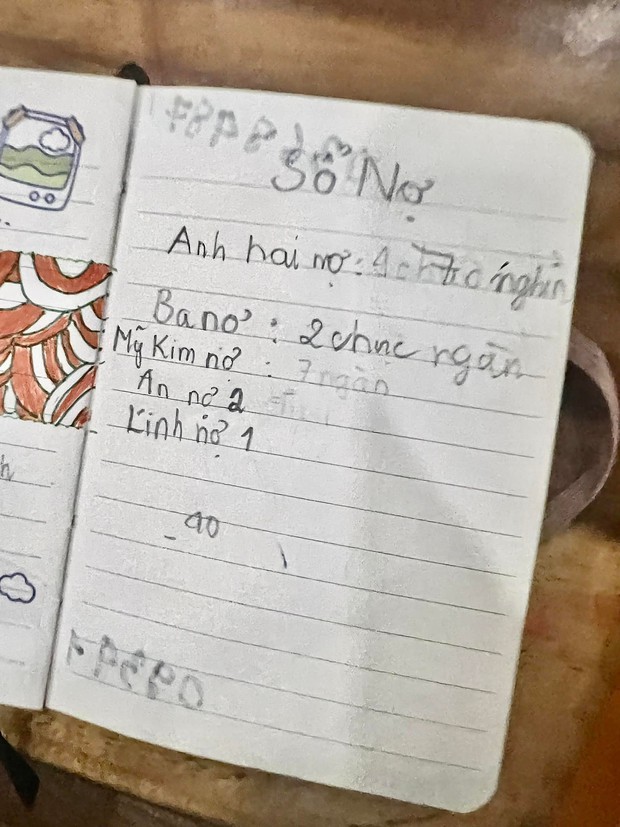 Sổ Nợ
Anh hai nợ: nghìn
Ba nợ : 2 chục ngàn
Mỹ Kim nợ : 7 ngàn
An nợ 2
Linh nợ 1